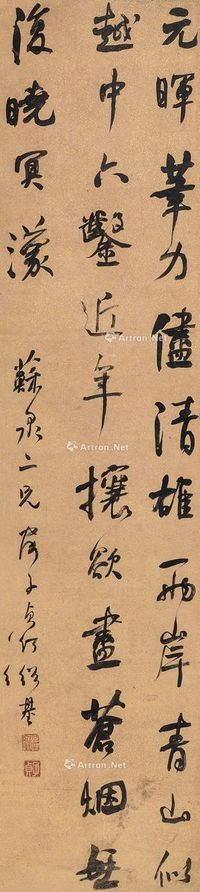 元暉筆力儘清雄兩岸青山似
越中六鑿近年攘欲盡蒼烟無
復曉冥濛
蘇泉二兄 子貞何紹基
Artron.Net
Artron.Net
Artron.Net